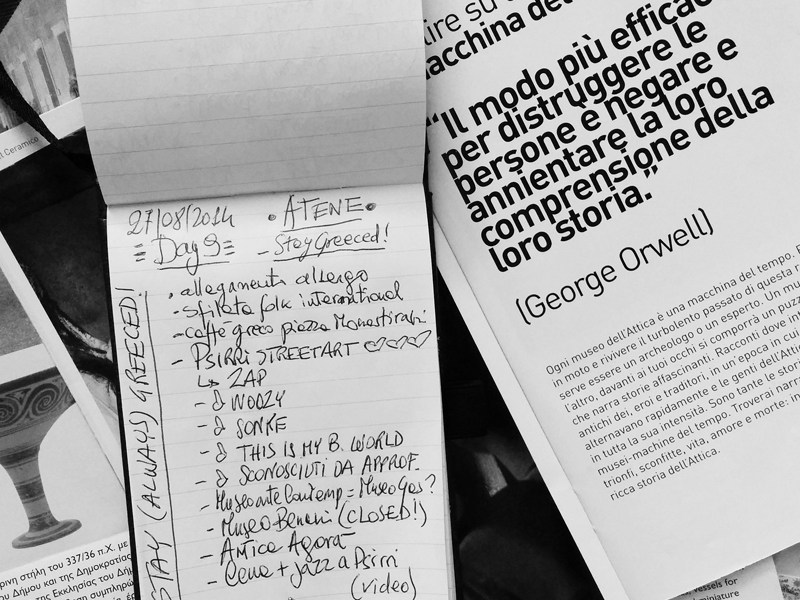 27/08/2014 • ATENE •
Day 9 - Stay Greeced!
• allegamenti albergo
- sfilata folk international
- caffè greco piazza Monastiraki
- PSIRRI STREETART ♡♡♡
↳ ZAP
- & WOOZY
- & SONKE
- & THIS IS MY B. WORLD
- & SCONOSCIUTI DA APPROF.
- Museo arte Contemp = Museo Gas?
- Museo Benaki (CLOSED!)
- Antica Agorà
- Cena + jazz a Psirri
(video)
STAY (ALWAYS) GREECED!
ire su
acchina del
“Il modo più efficac
per distruggere le
persone è negare e
annientare la loro
comprensione della
loro storia.”
(George Orwell)
Ogni museo dell'Attica è una macchina del tempo.
in moto e rivivere il turbolento passato di questa r
serve essere un archeologo o un esperto. Un mu
l'altro, davanti ai tuoi occhi si comporrà un puzz
che narra storie affascinanti. Racconti dove in
antichi dei, eroi e traditori, in un'epoca in cui
alternavano rapidamente e le genti dell'Attic
in tutta la sua intensità. Sono tante le stor
musei-macchine del tempo. Troverai narr
trionfi, sconfitte, vita, amore e morte: in
ricca storia dell'Attica.
t Ceramico
ρινη στήλη του 337/36 π.Χ. με
υ Δήμου και της Δημοκρατίας
της Εκκλησίας του Δή
συμπληρώ
vessels for
miniature